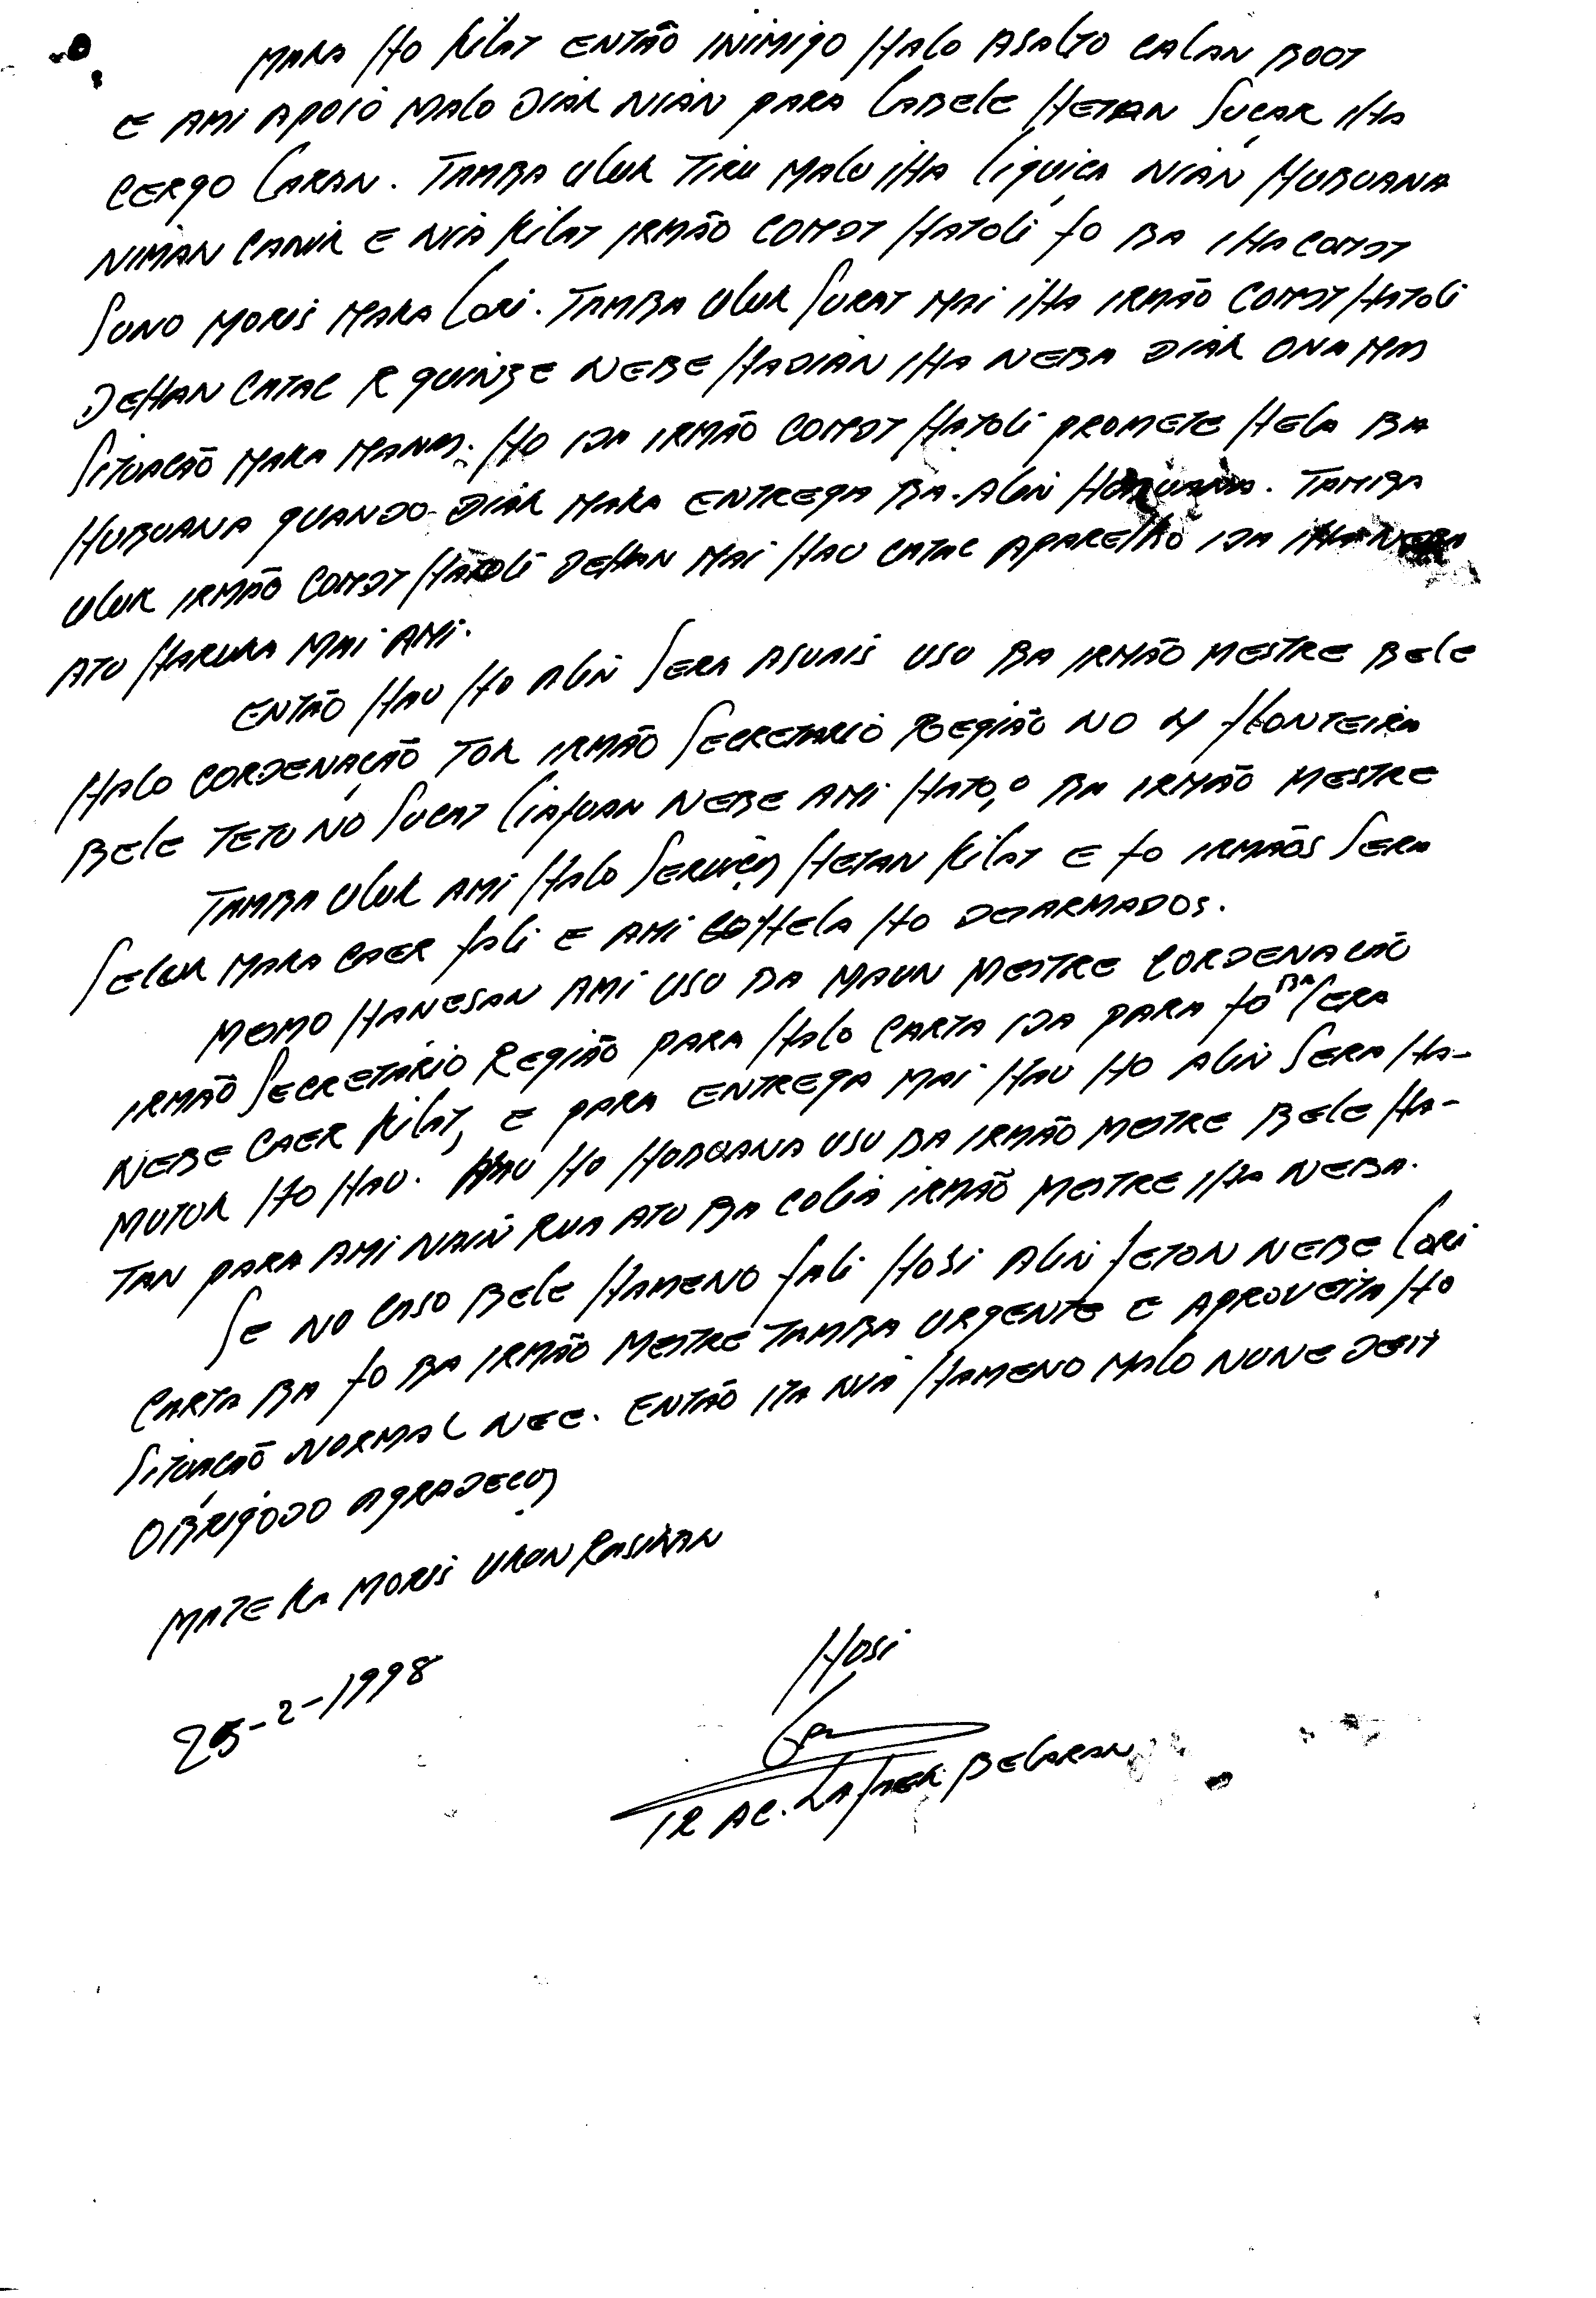 MAKA HO KILAT ENTÃO INIMIGO HALO ASALTO CALAN BOOT
E AMI APOIO MALO DIAK NIAN PARA LABELE HETAN SUÇAR IHA
CERGO LARAN. TAMBA ULUK TIRU MALU IHA LIQUIÇA NIAN HUBUANA
NIMAN CANUK E NIA KILAT IRMÃO COMDT HATOLI FO BA IHA COMDT
SUNO MORIS MAKA LORI. TAMBA ULUK SURAT MAI IHA IRMÃO COMDT HATOLI
DEHAN CATAC R QUINZE NEBE HADIAN IHA NEBA DIAK ONA MAS
SITUACÃO MAKA MANAS. HO IDA IRMÃO COMDT HATOLI PROMETE HELA BA
HUBUANA QUANDO DIAK MAKA ENTREGA BA. ALIN HUBUANA. TAMBA
ULUK IRMÃO COMDT HATOLI DEHAN MAI HAU CATAC APARELHO IDA IHA NEBA
ATU HARUKA MAI AMI.
ENTÃO HAU HO ALIN SERA ASUAIS USU BA IRMÃO MESTRE BELE
HALO CORDENAÇÃO TOK IRMÃO SECRETARIO REGIÃO NO 4 FRONTEIRA
BELE TETU NO SUCAT LIAFUAN NEBE AMI HATO,O BA IRMÃO MESTRE
TAMBA ULUK AMI HALO SERVIÇOS HETAN KILAT E FO IRMÃOS SERA
SELUK MAKA CAER FALI E AMI HELA HO DESARMADOS.
MESMO HANESAN AMI USU BA MAUN MESTRE CORDENACÃO
IRMÃO SECRETARIO REGIÃO PARA HALO CARTA IDA PARA FO BA SERA
NEBE CAER KILAT, E PARA ENTREGA MAI HAU HO ALIN SERA HA-
MUTUK HO HAU. HAU HO HUBUANA USU BA IRMÃO MESTRE BELE HA-
TAN PARA AMI NAIN RUA ATU BA COLIA IRMÃO MESTRE IHA NEBA.
SE NO CASO BELE HAMENO FALI HOSI ALIN FETON NEBE LORI
CARTA BA FO BA IRMÃO MESTRE TAMBA URGENTE E APROVEITA HO
SITUAÇÃO NORMAL NEE. ENTÃO ITA NIA HAMENO MALO NUNE DEIT
OBRIGODO AGRADEÇOS
MATE KA MORIS UKUN RASIKAN
25-2-1998
HOSI
12 AC. LAFAEK BELARAN